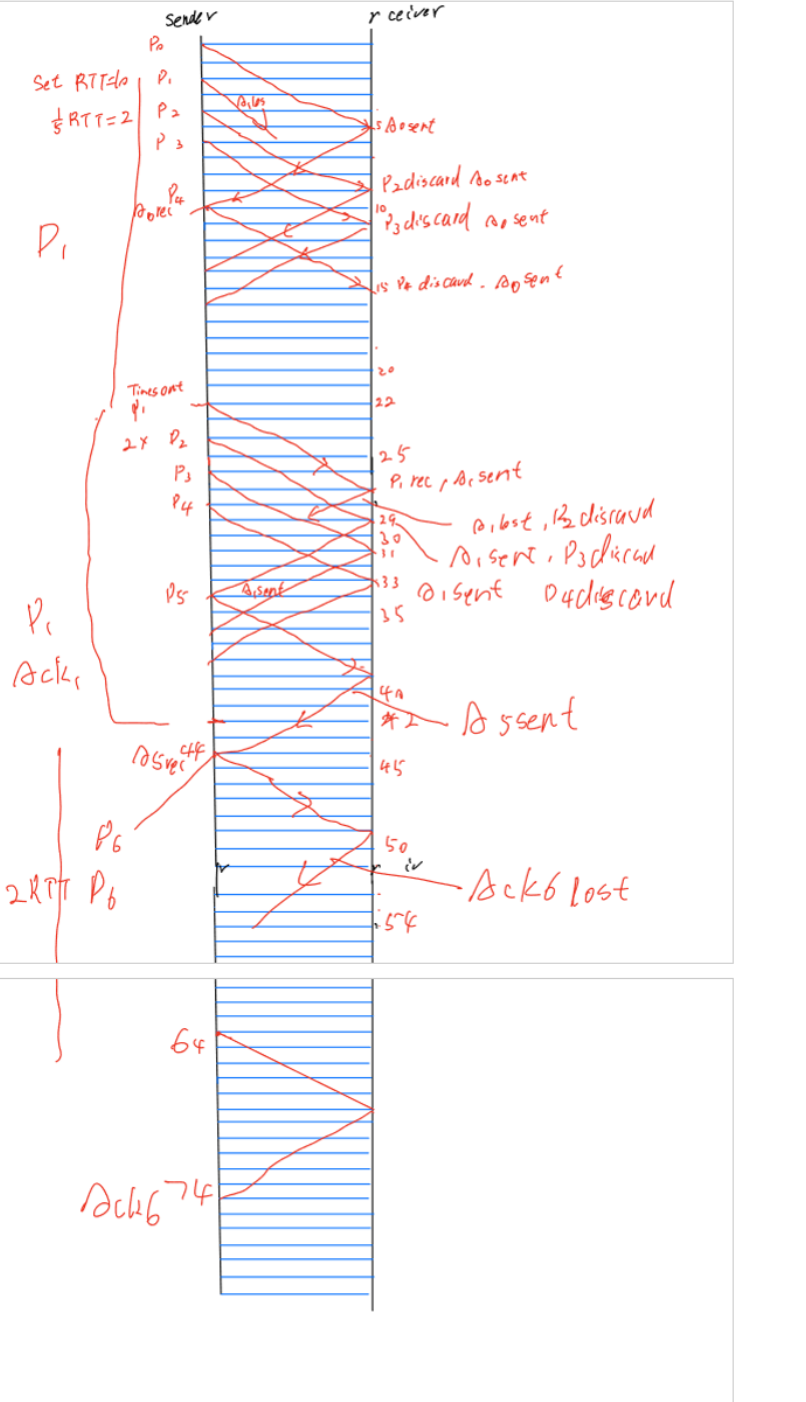 Sender
r ceiver
P0
Set RTT=10 P1
1/5 RTT=2 P2
P3
5 A0 sent
P2 discard A0 sent
P4
A0 rec
10
P3 discard A0 sent
P1
15 P4 discard . A0 sent
20
Timesout
P1
22
2x P2
25
P3
P1 rec , A1 sent
P4
A1 lost , P2 discard
29
30
31
A1 sent . P3 discad
33
A1 sent P4 discard
P5
A1 sent
35
P1
Ack1
40
42
A5 sent
A5 rec 44
45
P6
50
r
r iv
2RTT P6
Ack6 lost
54
64
Ack6 74